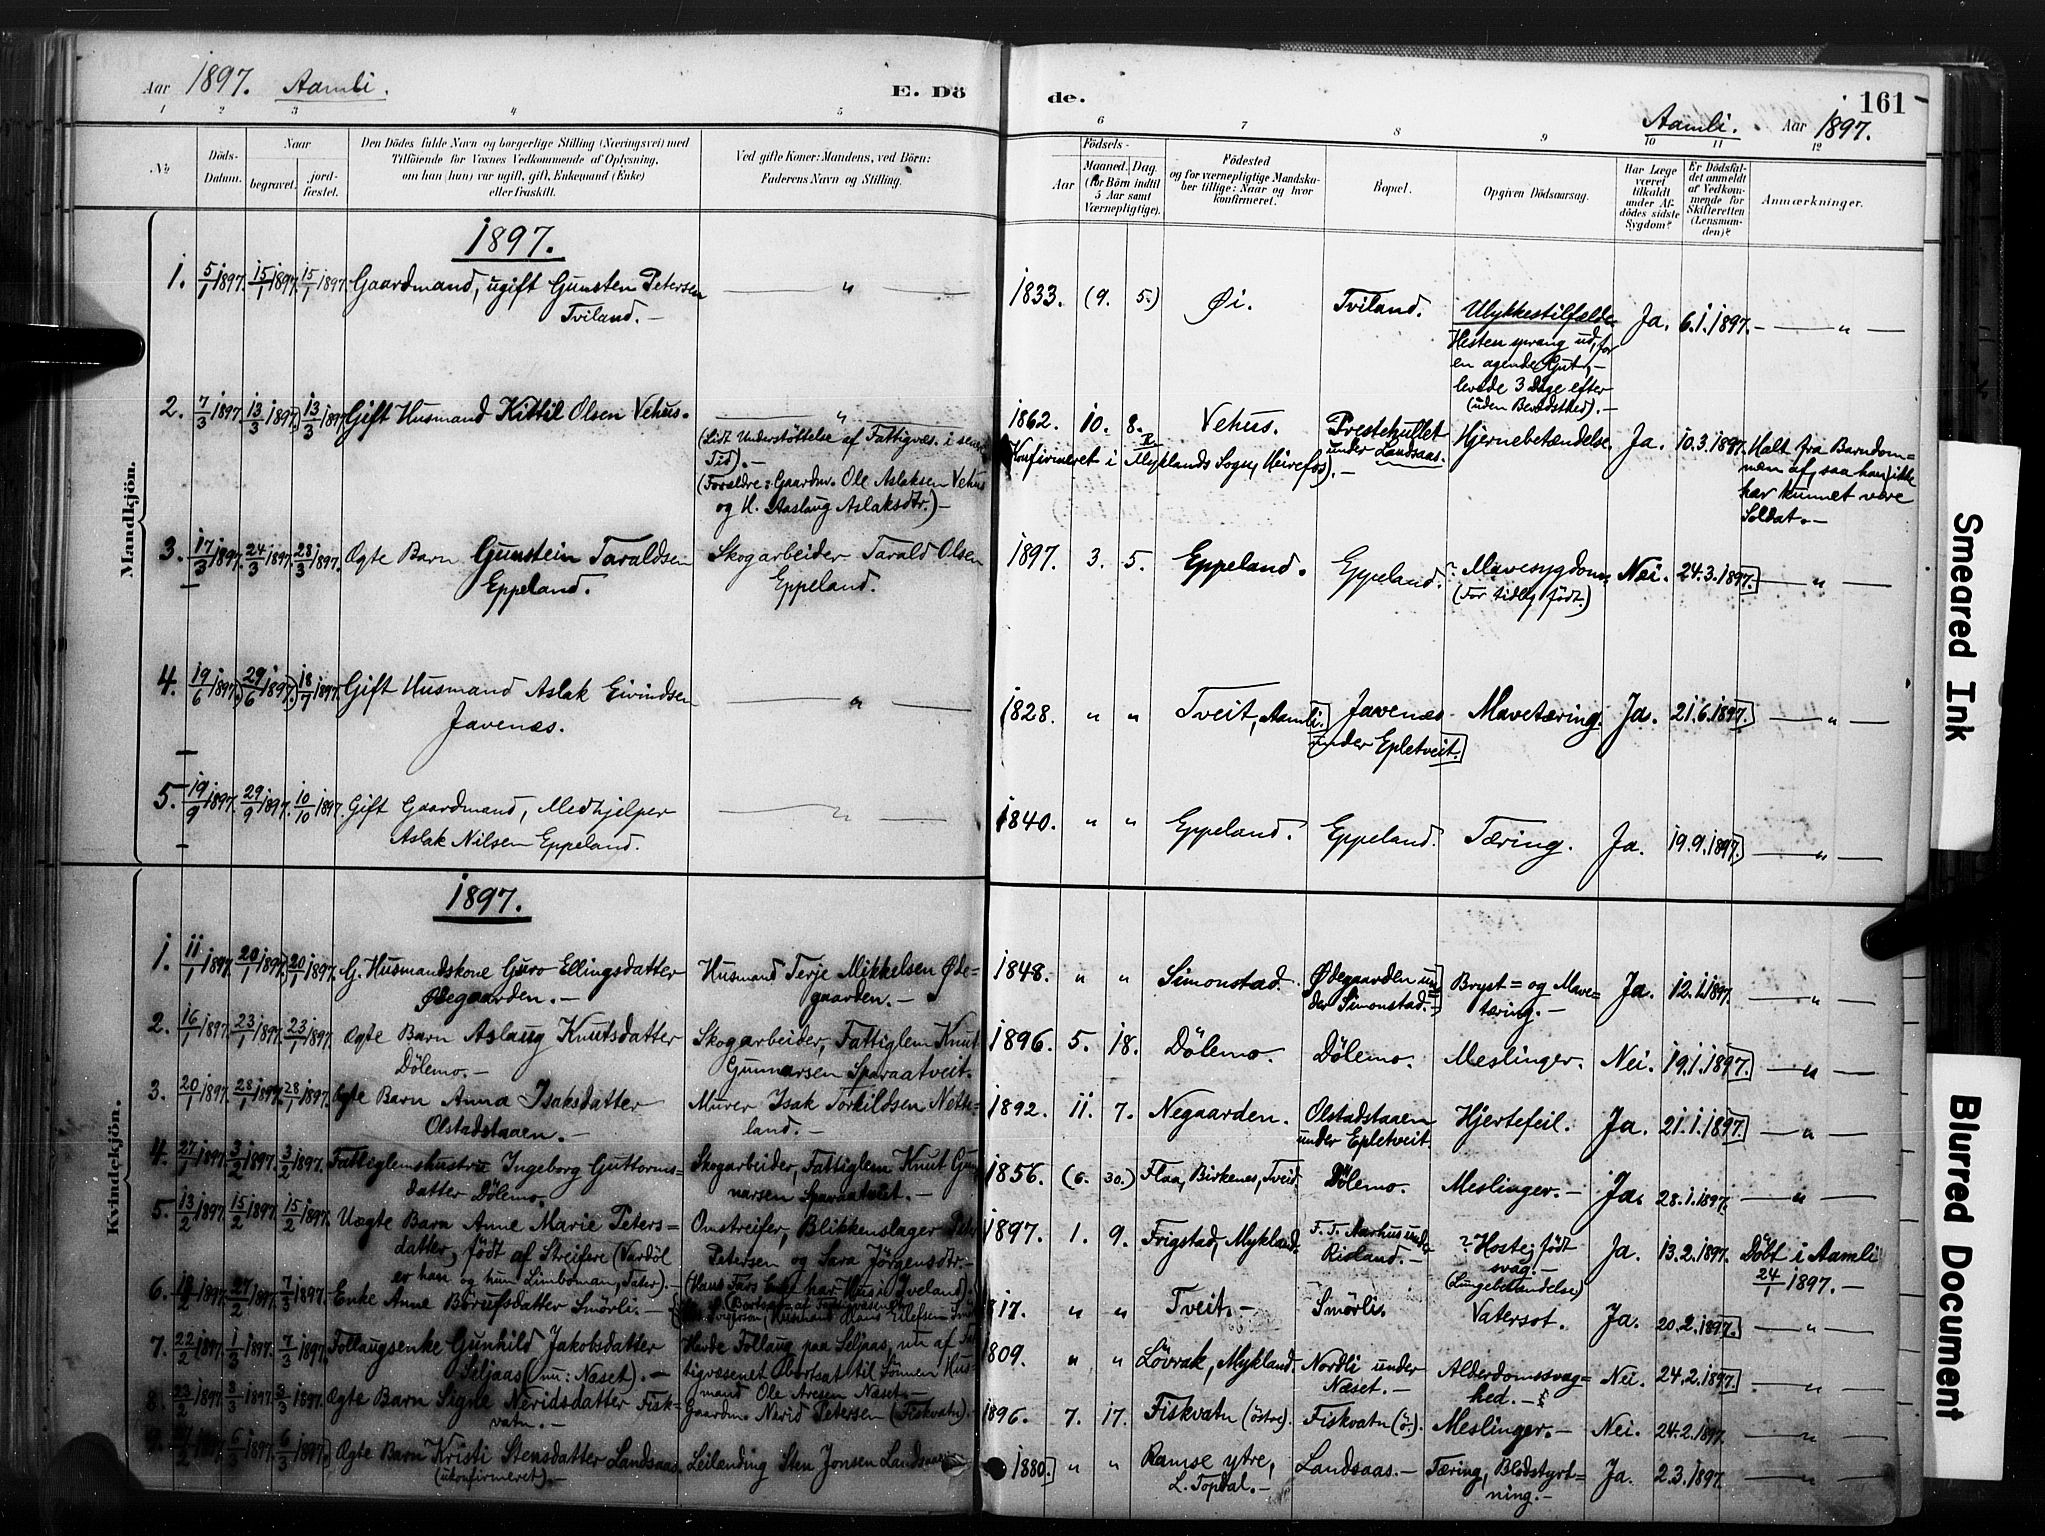 Aar 1897. Aamli.
E. Dö
de.
161
Aamli. Aar 1897.
1 2 3 4 5
6 7 8 9 10 11 12
No
Döds-
Datum.
Naar
begravet.
jord-
fæstet.
Den Dödes fulde Navn og borgerlige Stilling (Næringsvei) med
Tilföiende for Voxnes Vedkommende af Oplysning,
om han (hun) var ugift, gift, Enkemand (Enke)
eller fraskilt.
Ved gifte Koner: Mandens, ved Börn:
Faderens Navn og Stilling.
Födsels-
Aar
Maaned. Dag.
(for Börn indtil
5 Aar samt
Værnepligtige).
Födested
og for værnepligtige Mandska-
ber tillige: Naar og hvor
konfirmeret.
Bopæl.
Opgiven Dödsaarsag.
Har Læge
været
tilkaldt
under Af-
dödes sidste
Sygdom?
Er Dödsfal-
det anmeldt
af Vedkom-
mende for
Skifteretten
(Lensman-
den)?
Anmærkninger.
Mandkjön.
1897.
1. 5/1 1897. 15/1 1897. 15/1 1897. Gaardmand, ugift Gunsten Petersen
Tviland. —
— " —
1833. (9. 5.) Øi. Tviland. Ulykkestilfælde
Hesten sprang ud, for
en agende Gut, —
levede 3 Dage efter
(uden Bevidsthed). —
Ja. 6.1.1897. — " —
2. 7/3 1897. 13/3 1897. 13/3 1897. Gift Husmand Kittil Olsen Vehus.
— " —
(Lidt Understöttelse af Fattigvæs. i senere
Tid). —
(Forældre: Gaardm. Ole Aslaksen Vehus
og H. Aaslaug Aslaksdtr.) —
1862. 10. 8. Vehus. Prestehullet
under Landsaas.
Hjernebetændelse Ja. 10.3.1897. Halt fra Barndom-
men af, saa han ikke
har kunnet være
Soldat. —
Konfirmeret i Myklands Sogn, Heirefos). —
3. 17/3 1897. 24/3 1897. 28/3 1897. Ægte Barn Gunstein Taraldsen
Eppeland.
Skogarbeider Tarald Olsen
Eppeland.
1897. 3. 5. Eppeland. Eppeland. ? Mavesygdom
(For tidlig födt.)
Nei. 24.3.1897. — " —
4. 19/6 1897. 29/6 1897. 18/7 1897. Gift Husmand Aslak Eivindsen
Javenæs.
— " —
1828. " " Tveit, Aamli. Javenæs
under Epletveit.
Mavetæring. Ja. 21.6.1897. — " —
5. 19/9 1897. 29/9 1897. 10/10 1897. Gift Gaardmand, Medhjelper
Aslak Nilsen Eppeland.
— " —
1840. " " Eppeland. Eppeland. Tæring. Ja. 19.9.1897. — " —
Kvindekjön.
1897.
1. 11/1 1897. 20/1 1897. 20/1 1897. G. Husmandskone Guro Ellingsdatter
Ødegaarden. —
Husmand Terje Mikkelsen Øde=
gaarden. —
1848. " " Simonstad. Ødegaarden un=
der Simonstad. —
Bryst= og Mave=
tæring. —
Ja. 12.1.1897. — " —
2. 16/1 1897. 23/1 1897. 23/1 1897. Ægte Barn Aslaug Knutsdatter
Dölemo. —
Skogarbeider, Fattiglem Knut
Gunnarsen Sparaatveit.
1896. 5. 18. Dölemo. Dölemo. Meslinger. Nei. 19.1.1897. — " —
3. 20/1 1897. 28/1 1897. 28/1 1897. Ægte Barn Anna Isaksdatter
Olstadstaaen. —
Murer Isak Torkildsen Nette=
land. —
1892. 11. 7. Negaarden. Olstadstaaen
under Epletveit
Hjertefeil. Ja. 21.1.1897. — " —
4. 27/1 1897. 3/2 1897. 3/2 1897. Fattiglemshustru Ingeborg Guttorms=
datter Dölemo.
Skogarbeider, Fattiglem Knut Gun
narsen Sparaatveit. —
1856. (6. 30.) Flaa, Birkenes, Tveid Dölemo. Meslinger. — Ja. 28.1.1897. — " —
5. 13/2 1897. 15/2 1897. 15/2 1897. Uægte Barn Anne Marie Peters=
datter, födt af Streifere (Vardöl
er han og hun Limboman, Tater). —
Omstreifer, Blikkenslager Peter
Petersen og Sara Jörgensdtr. —
(Hans Fars har Hus i Iveland).
1897. 1. 9. Frigstad, Mykland. F. T. Aarhus under
Risland. —
? Hoste, födt
svag. —
(Lungebetændelse)
Ja. 13.2.1897. Döbt i Aamli
24/1 1897. —
6. 18/2 1897. 27/2 1897. 7/3 1897. Enke Anne Börufsdatter Smörli. —
(Bortsat af Fattigvæsenet
Svigersön, Husmand Hans Eilefsen
1817. " " Tveit. — Smörli. Vatersot. Ja. 20.2.1897. — " —
7. 22/2 1897. 1/3 1897. 7/3 1897. Follaugsenke Gunhild Jakobsdatter
Seljaas (nu: Næset). —
Havde Follaug paa Seljaas, nu af Fat
tigvæsenet bortsat til Sönnen Hus=
mand Ole Aresen Næset. —
1809. " " Lövrak, Mykland. Nordli under
Næset. —
Alderdomssvag=
hed. —
Nei. 24.2.1897. — " —
8. 23/2 1897. 3/3 1897. 8/3 1897. Ægte Barn Signe Neridsdatter Fisk=
vatn. —
Gaardm. Nerid Petersen (Fiskvatn).
1896. 7. 17. Fiskvatn (östre). Fiskvatn (ö.). Meslinger. — Nei. 24.2.1897. — " —
9. 27/2 1897. 6/3 1897. 6/3 1897. Ægte Barn Kristi Stensdatter Landsaas.
(ukonfirmeret). —
Leilending Sten Jonsen Landsaas
1880. " " Ramse ytre,
L. Topdal. —
Landsaas. — Tæring, Blodstyrt=
ning. —
Ja. 2.3.1897. — " —
Smeared Ink
Blurred Document